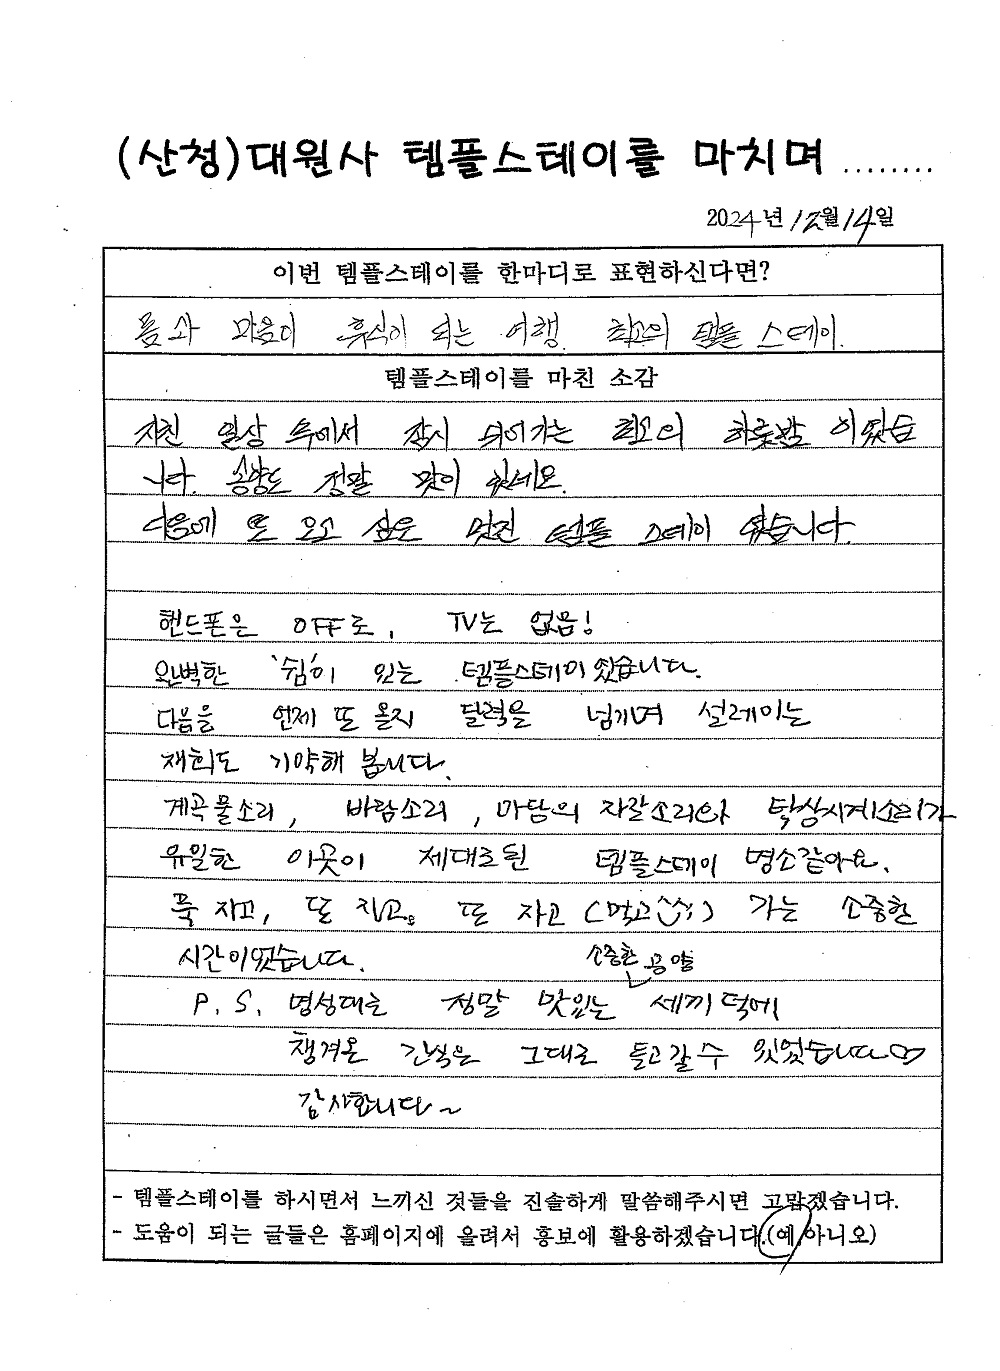 (산청)대원사 템플스테이를 마치며 ........
2024년 12월 14일
이번 템플스테이를 한마디로 표현하신다면?
몸과 마음이 휴식이 되는 여행. 최고의 템플 스테이.
템플스테이를 마친 소감
지친 일상 속에서 잠시 쉬어가는 최고의 하룻밤 이었습
니다. 공양도 정말 맛이 있네요.
다음에 또 오고 싶은 멋진 템플 스테이 였습니다.
핸드폰은 OFF로, TV는 없음!
완벽한 '쉼'이 있는 템플스테이 였습니다.
다음을 언제 또 올지 달력을 넘기며 설레이는
재회도 기약해 봅니다.
계곡물소리, 바람소리, 마당의 자갈소리와 탁상시계소리가
유일한 이곳이 제대로된 템플스테이 명소같아요.
푹 자고, 또 자고. 또 자고 (먹고^^;) 가는 소중한
시간이였습니다.
소중한 공양
P.S. 명성대로 정말 맛있는 세끼 덕에
챙겨온 간식은 그대로 들고갈 수 있었습니다♡
감사합니다~
- 템플스테이를 하시면서 느끼신 것들을 진솔하게 말씀해주시면 고맙겠습니다.
- 도움이 되는 글들은 홈페이지에 올려서 홍보에 활용하겠습니다.(예,아니오)